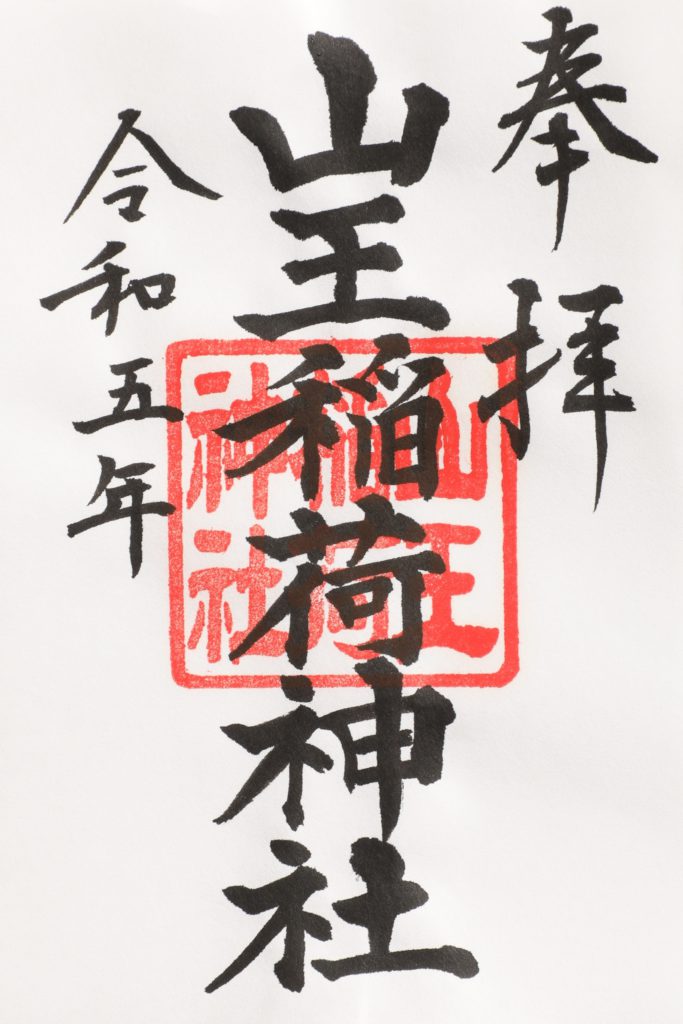 奉拝
山王稲荷神社
令和五年
山王
稲荷
神社